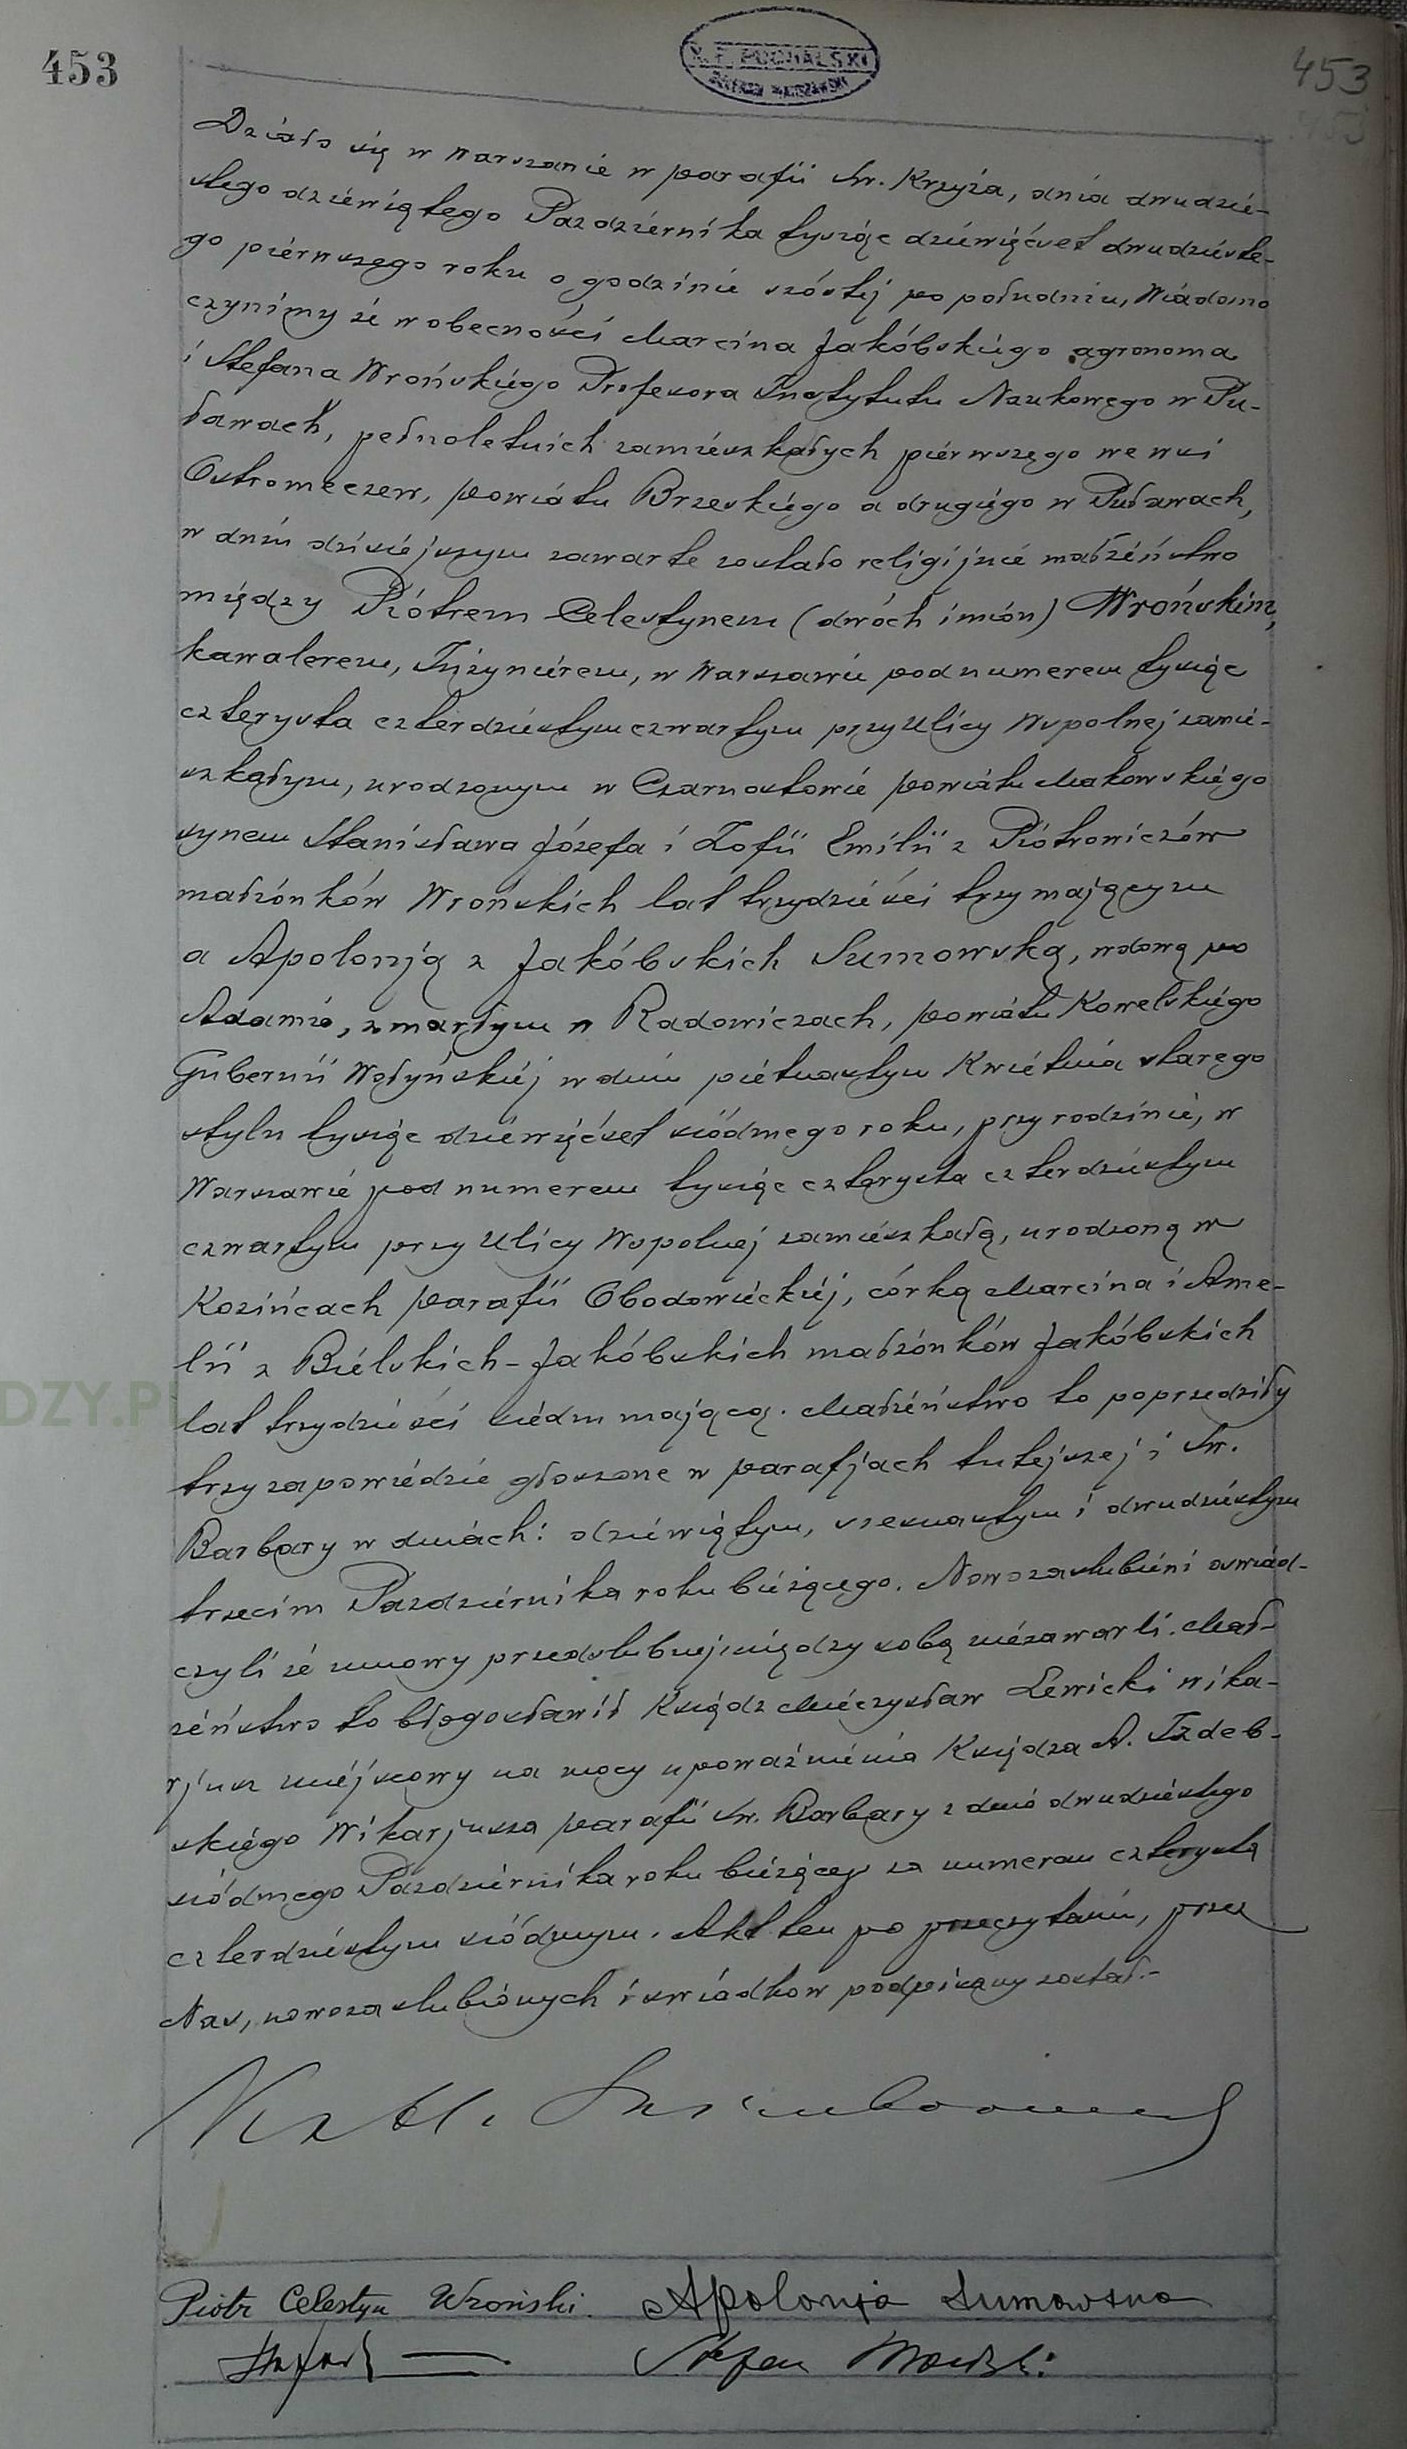 453
X. F. PUCHALSKI
453
Działo się w Warszawie w parafii Św. Krzyża, dnia dwudzie-
stego dziewiątego Października tysiąc dziewięćset dwudzieste-
go piérwszego roku o godzinie szóstéj po południu, Wiadomo
czynimy że w obecności Marcina Jakóbskiego agronoma
i Stefana Wrońskiego Profesora Instytutu Naukowego w Pu-
ławach, pełnoletnich zamieszkałych piérwszego we wsi
Ostromeczew, powiatu Brzeskiego a drugiego w Puławach,
w dniu dzisiejszym zawarte zostało religijne małżeństwo
między Piotrem Celestynem (dwóch imion) Wrońskim,
kawalerem, Inżynierem, w Warszawie pod numerem tysiąc
czterysta czterdziestym czwartym przy Ulicy Wspolnej zamie-
szkałym, urodzonym w Czarnostowie powiatu Makowskiego
synem Stanisława Józefa i Zofii Emilii z Piotrowiczów
małżonków Wrońskich lat trzydzieści trzy mającym
a Apolonją z Jakóbskich Sumowską, wdową po
Adamie, zmarłym w Radowiczach, powiatu Kowelskiego
Gubernii Wołyńskiéj w dniu piétnastym Kwietnia starego
stylu tysiąc dziewięćset siódmego roku, przy rodzinie, w
Warszawie pod numerem tysiąc czterysta czterdziestym
czwartym przy Ulicy Wspolnej zamieszkałą, urodzoną w
Kozińcach parafii Obodowieckiéj, córką Marcina i Ame-
lii z Bielskich-Jakóbskich małżonków Jakóbskich
lat trzydzieści siedm mającą. Małżeństwo to poprzedziły
trzy zapowiedzie głoszone w parafjach tutejszej i Św.
Barbary w dniach: dziewiątym, szesnastym i dwudziestym
trzecim Października roku bieżącego. Nowozaślubieni oświad-
czyli że umowy przedślubnej między sobą niezawarli. Mał-
żeństwo to błogosławił Ksiądz Mieczysław Lewicki wika-
rjusz miéjscowy na mocy upoważnienia Księdza A. Izdeb-
skiego Wikarjusza parafii Św. Barbary z dnia dwudziestego
siódmego Października roku bieżącego za numerem czterysta
czterdziestym siódmym. Akt ten po przeczytaniu, przez
Nas, nowozaślubionych i świadków podpisany został.-
Piotr Celestyn Wroński. Apolonja Sumowska
Stefan Wroński